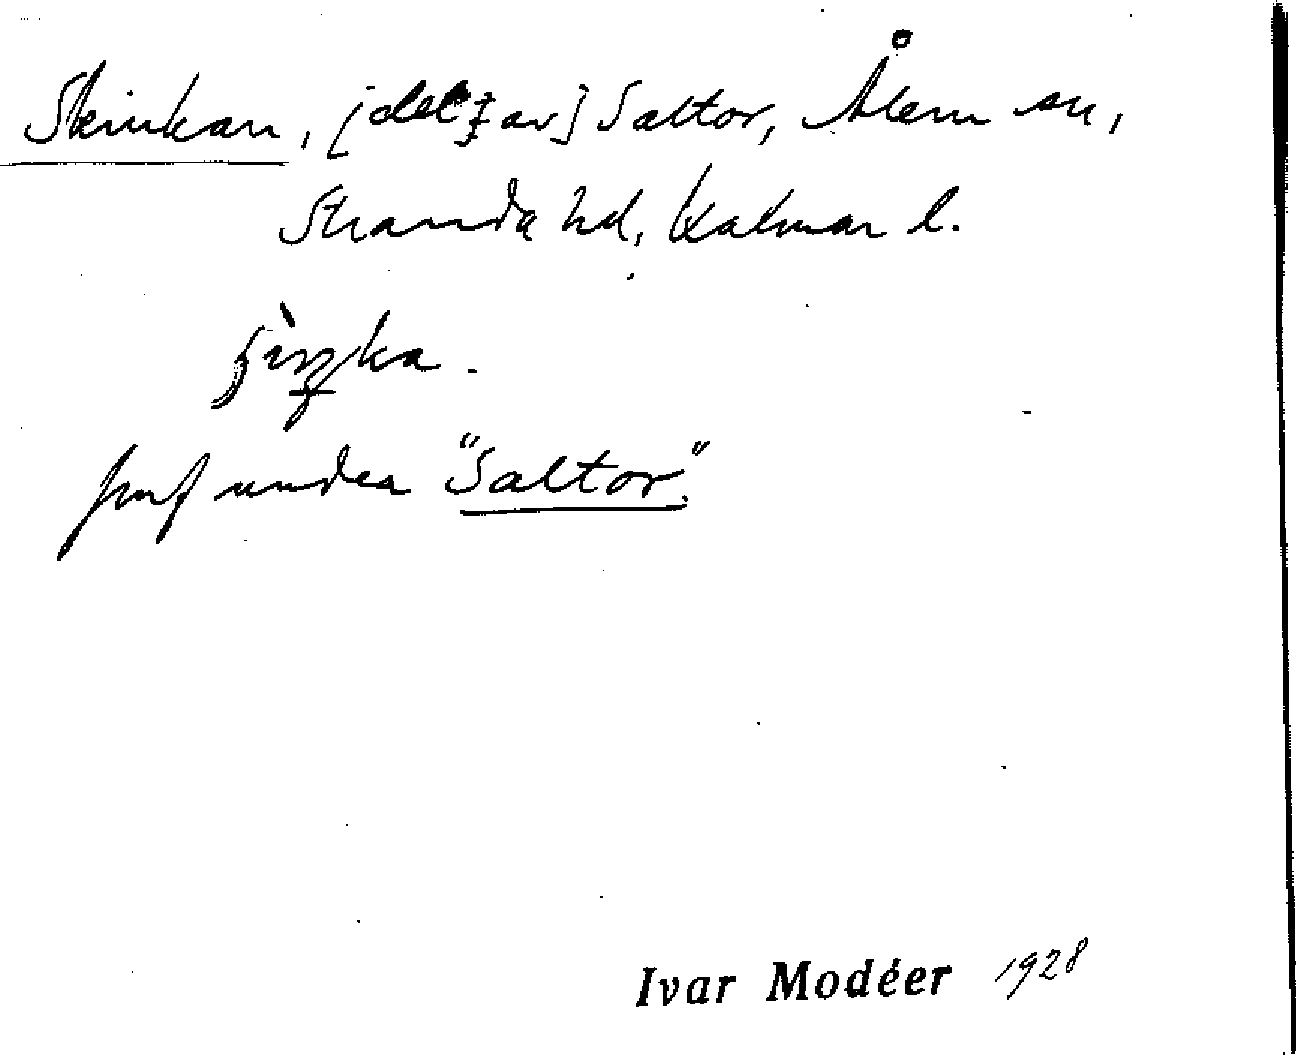 Skinkan, [del av] Saltor, Ålem sn,
Stranda hd, Kalmar l.
under "Saltor".
Ivar Modéer 1928